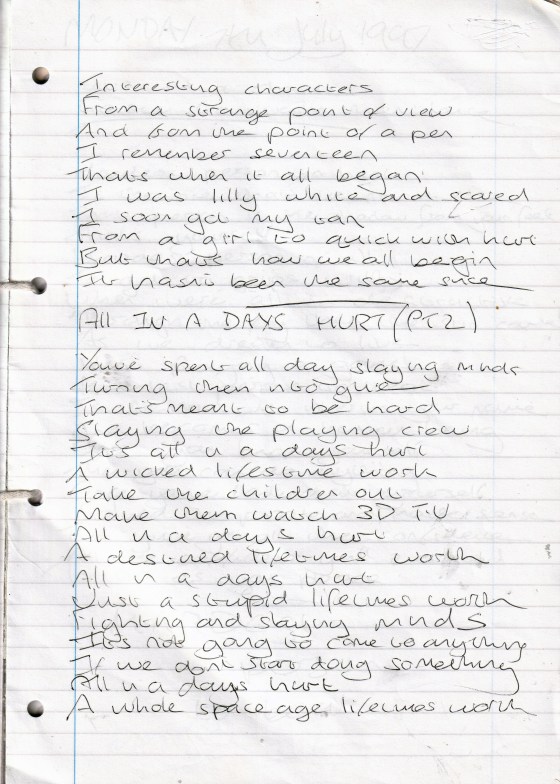 Interesting characters
From a strange point of view
And from the point of a pen
I remember seventeen
Thats when it all began
I was lilly white and scared
I soon got my tan
From a girl to quick with hurt
But thats how we all begin
It hasnt been the same since
All IN A DAYS HURT (PT2)
You've spent all day slaying minds
Turning them into glue
That's meant to be hard
Slaying the playing crew
It's all in a days hurt
A wicked lifestime work
Take the children out
Make them watch 3D T.V
All in a days hurt
A destined lifetimes worth
All in a days hurt
Just a stupid lifetimes worth
Fighting and slaying minds
It's not going to come to anything
If we dont start doing something
All in a days hurt
A whole space age lifetimes worth